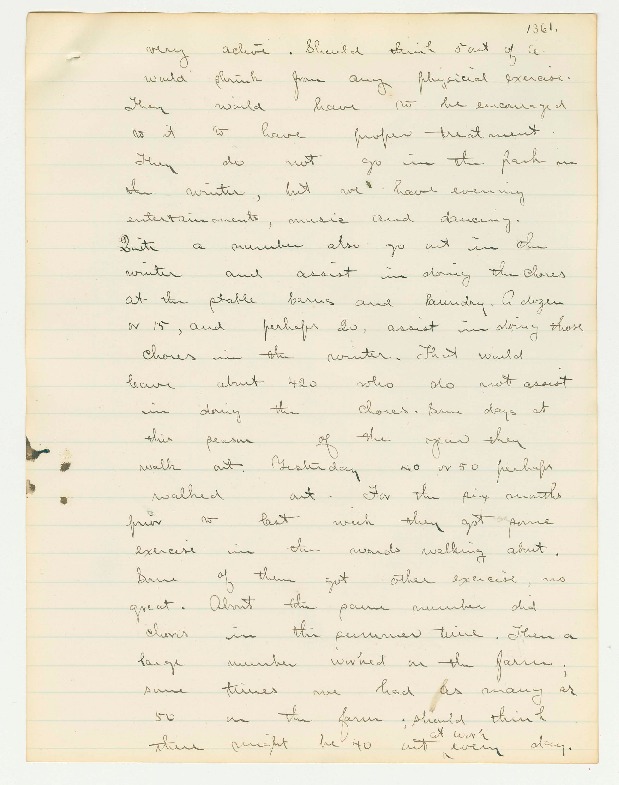 1361.
very active. Should think 5 out of 6
would shrink from any physicial exercise.
They would have to be encouraged
to it to have proper treatment.
They do not go in the park in
the winter, but we have evening
entertainments, music and dancing.
Quite a number also go out in the
winter and assist in doing the chores
at the stable barns and laundry. A dozen
or 15, and perhaps 20, assist in doing those
chores in the winter. That would
leave about 420 who do not assist
in doing the chores. Some days at
this season of the year they
walk out. Yesterday 40 or 50 perhaps
walked out. For the six months
prior to last week they got some
exercise in the wards walking about.
Some of them got other exercise, no
great. About the same number did
chores in the summer time. Then a
large number worked on the farm;
some times we had as many as
50 on the farm; should think
there might be 40 out at work every day.